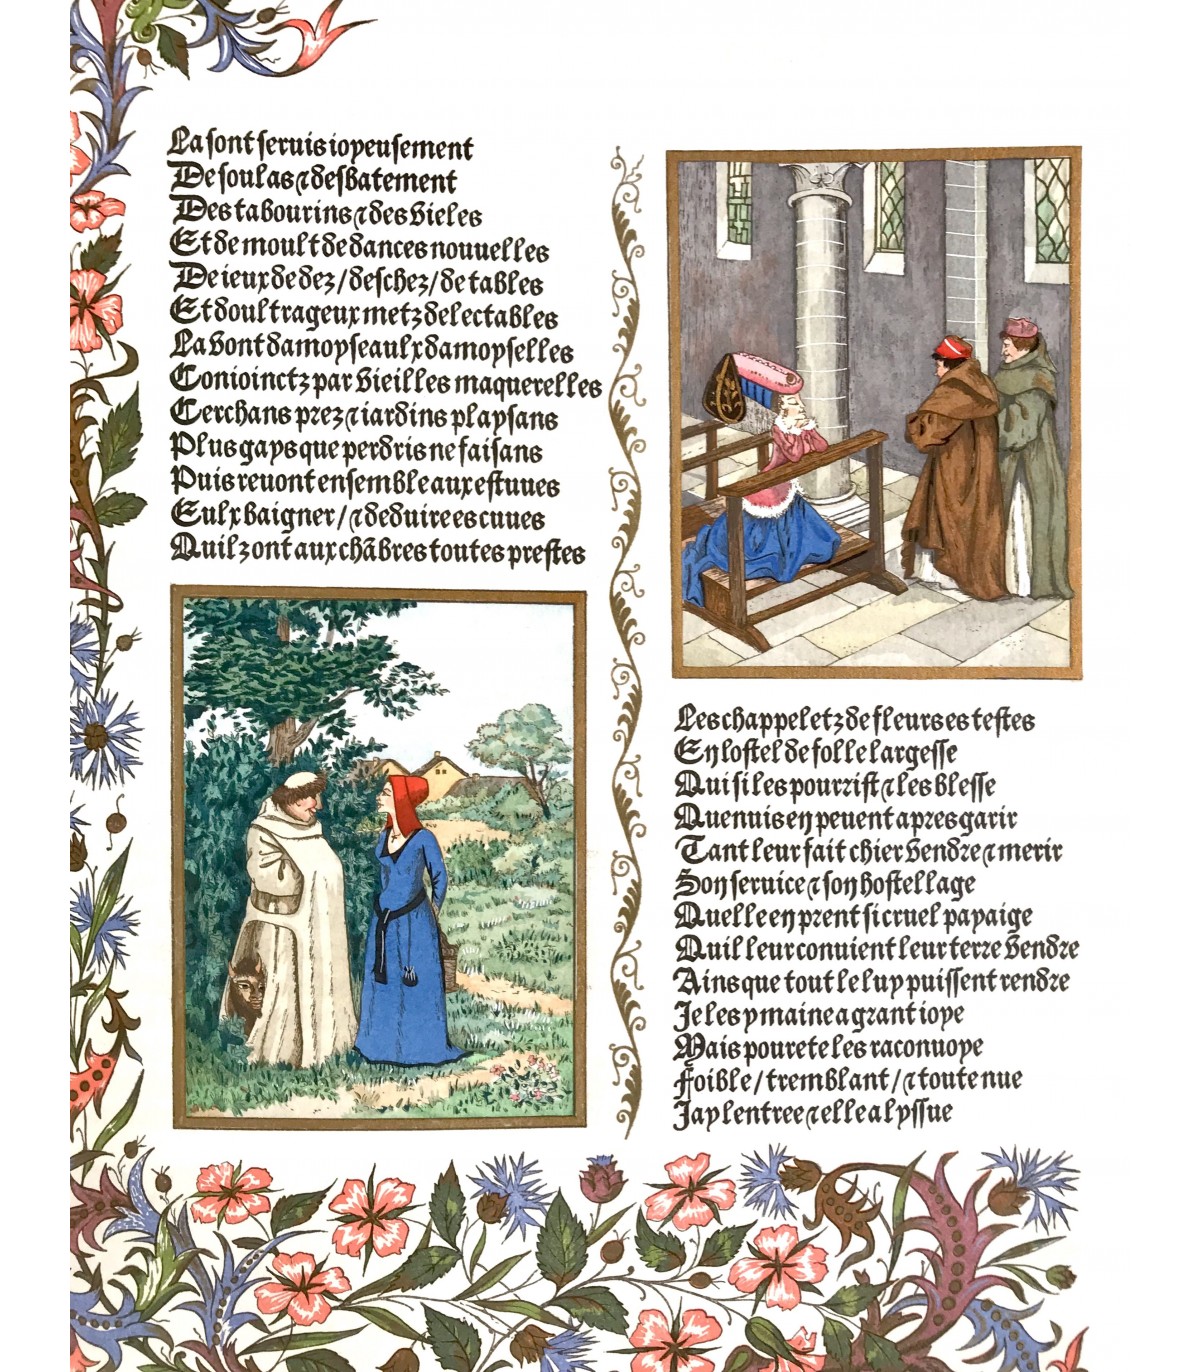 La sont seruis ioyeusement
De soulas ⁊ desbatement
Des tabourins ⁊ des vieles
Et de moult de dances nouuelles
De ieux de dez / deschez / de tables
Et doultrageux metz delectables
La vont damoyseaulx damoyselles
Conioinctz par vieilles maquerelles
Cerchans prez ⁊ iardins playsans
Plus gays que perdris ne faisans
Puis reuont ensemble aux estuues
Eulx baigner / ⁊ deduire es cuues
Quilz ont aux chãbres toutes prestes
Les chappeletz de fleurs es testes
En lostel de folle largesse
Qui si les pourrist ⁊ les blesse
Quenuis en peuent apres garir
Tant leur fait chier vendre ⁊ merir
Son seruice ⁊ son hostellage
Quelle en prent si cruel payaige
Quil leur conuient leur terre vendre
Ains que tout le luy puissent rendre
Je les y maine a grant ioye
Mais pourete les raconuoye
Foible / tremblant / ⁊ toute nue
Jay lentree ⁊ elle a lyssue